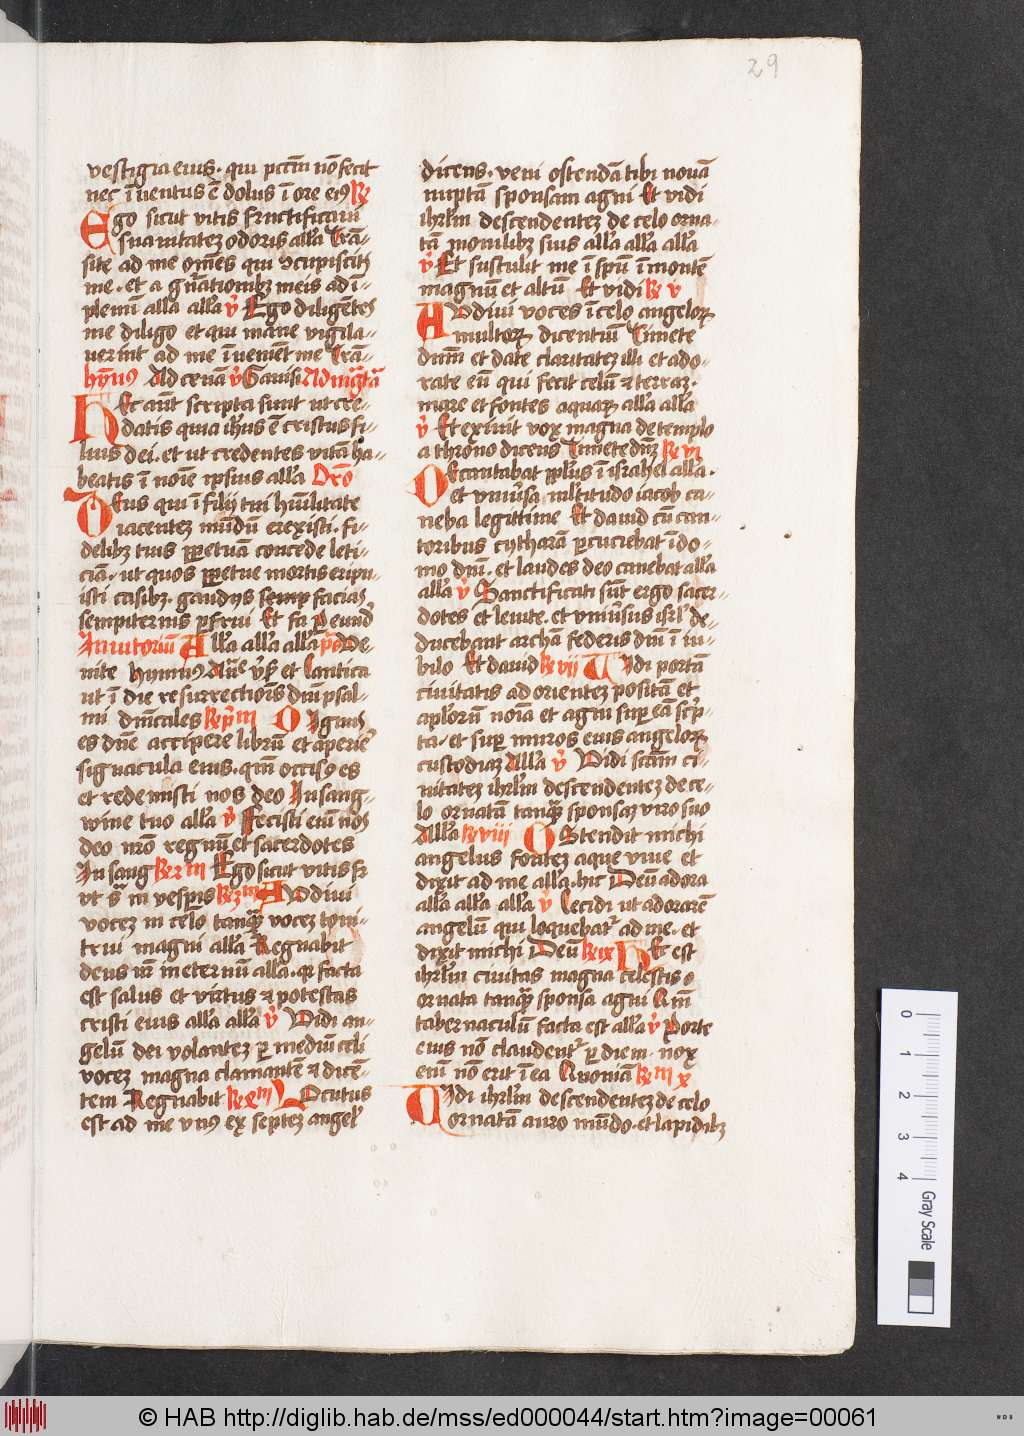 29
vestigia eius. qui pctm̄ nō fecit
nec īuentus ē dolus ī ore eiꝰ R̷
Ego sicut vitis fructificaui
suauitatez odoris allꝛa Trā-
site ad me oēs qui ɔcupiscitꝭ
me. et a gn̄ationibꝫ meis ad ī-
plemī alla alla v̓ Ego diligētes
me diligo et qui mane vigila-
uerint ad me īuenient me Trā-
hymꝰ Ad cenā v̓ Gauisi Ad mgt̄a
Hec aūt scripta sunt ut cre-
datis quia ihūs ē cristus fi-
lius dei. et ut credentes vitā ha-
beatis ī noīe ipsius alla Orō
Deus qui ī filij tui humīlitate
iacentez mūdū erexisti. fi-
delibꝫ tuis ꝑpetuā concede leti-
ciā. ut quos ꝑpetue mortis eripu-
isti casibꝫ. gaudijs semꝑ facias
sempiternis ꝑfrui Et fa ꝑ eund̓
Inuitoriū Alla alla alla ps̄ Ve-
nite hymnꝰ Añe v̓s̓ et Cantica
ut ī die resurrectiōis dn̄i psal-
mi dn̄icales R̷ pͥm Dignus
es dn̄e accipere librū et aperie̓
signacula eius. qm̄ occisꝰ es
et redemisti nos deo In sang-
wine tuo alla v̓ Fecisti eim̄ nos
deo nr̄o regnū et sacerdotes
In sang R̷ z m Ego sicut vitis fr
vt sͣ in vesperis R̷ 3m Audiui
vocez in celo tanqͣ vocez toni-
trui magni alla Regnabit
deus nr̄ in eternū alla. qꝛ facta
est salus et virtus et potestas
cristi eius alla alla v̓ Vidi an-
gelū dei volantez ꝑ mediū celi
vocez magna clamantē et dicē-
tem Regnabit R̷ 4m Locutus
est ad me vnꝰ ex septez angel̓
dicens. veni ostendā tibi nouā
nuptā sponsam agni Et vidi
ihrl̄m descendentez de celo orna-
tā monilibꝫ suis alla alla alla
v̓ Et sustulit me ī spū ī montē
magnū et altū Et vidi R̷ v
Audiui voces ī celo angeloꝝ
multoꝝ dicentiū Timete
dn̄m et date claritatez illi et ado-
rate eū qui fecit celū et terraz.
mare et fontes aquaꝝ alla alla
v̓ Et exiuit vox magna de templo
a throno dicens Timete dn̄z R̷ vi
Decantabat ppl̄us ī israhel alla.
et vniuͥsa ml̄titudo iacob ca-
neba legittime Et dauid cū can-
toribus cytharā ꝑcuciebat ī do-
mo dn̄i. et laudes deo canebat alla
alla v̓ Sanctificati sūt ergo sacer-
dotes et leuite. et vniuͥsus isrl̓ de-
ducebant archā federis dn̄i ī iu-
bilo Et dauid R̷ vii Vidi portā
ciuitatis ad orientez positā et
apl̓orū noīa et agni suꝑ eā scͥp-
ta. et suꝑ muros eius angeloꝝ
custodiaz Alla v̓ Vidi sctām ci-
uitatez ihrl̄m descendentez de ce-
lo ornatā tanqͣ sponsaz viro suo
Alla R̷ viii Ostendit michi
angelus fontez aque viue et
dixit ad me alla. hic Deū adora
alla alla alla v̓ Cecidi ut adorarē
angelū qui loquebat̓ ad me. et
dixit michi Deū R̷ ix Hec est
ihrl̄m ciuitas magna celestis
ornata tanqͣ sponsa agni Qm̄
tabernaculū facta est alla v̓ Porte
eius nō claudent̓ ꝑ diem. nox
eim̄ nō erit ī ea Qnoniā R̷ m x
Vidi ihrl̄m descendentez de celo
ornatā auro mūdo. et lapidibꝫ
0 1 2 3 4 Gray Scale
© HAB http://diglib.hab.de/mss/ed000044/start.htm?image=00061